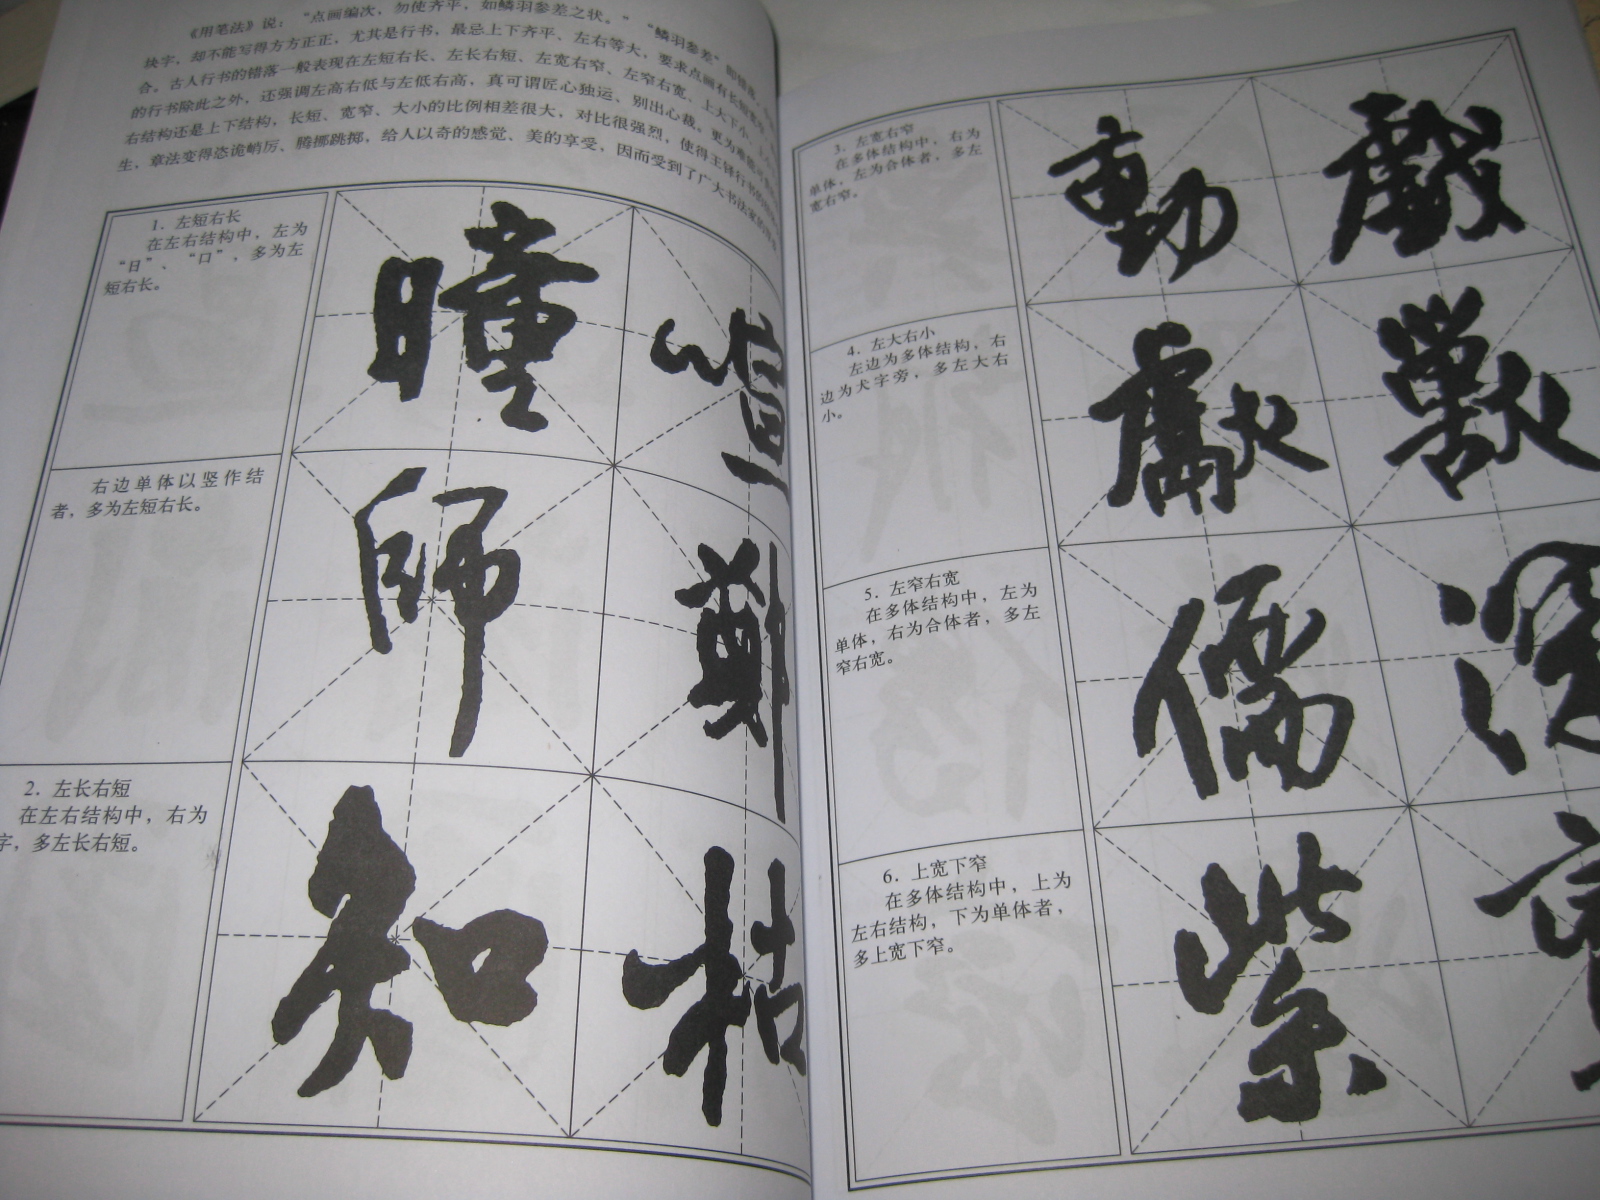 《用笔法》说：“点画编次，勿使齐平，如鳞羽参差之状。”“鳞羽参差”
块字，却不能写得方方正正，尤其是行书，最忌上下齐平、左右等大，要求点画有长短
合。古人行书的错落一般表现在左短右长、左长右短、左宽右窄、左窄右宽、上大下小、
的行书除此之外，还强调左高右低与左低右高，真可谓匠心独运、别出心裁。更为难能可贵
右结构还是上下结构，长短、宽窄、大小的比例相差很大，对比很强烈，使得王铎行书的
生，章法变得恣诡峭厉、腾挪跳掷，给人以奇的感觉、美的享受，因而受到了广大书法家的
1．左短右长
在左右结构中，左为
“日”、“口”，多为左
短右长。
曈
喧
右边单体以竖作结
者，多为左短右长。
師
鄭
2．左长右短
在左右结构中，右为
字，多左长右短。
知
枯
3．左宽右窄
在多体结构中，右为
单体，左为合体者，多左
宽右窄。
動
戲
4．左大右小
左边为多体结构，右
边为犬字旁，多左大右
小。
獻
獸
5．左窄右宽
在多体结构中，左为
单体，右为合体者，多左
窄右宽。
儒
深
6．上宽下窄
在多体结构中，上为
左右结构，下为单体者，
多上宽下窄。
紫